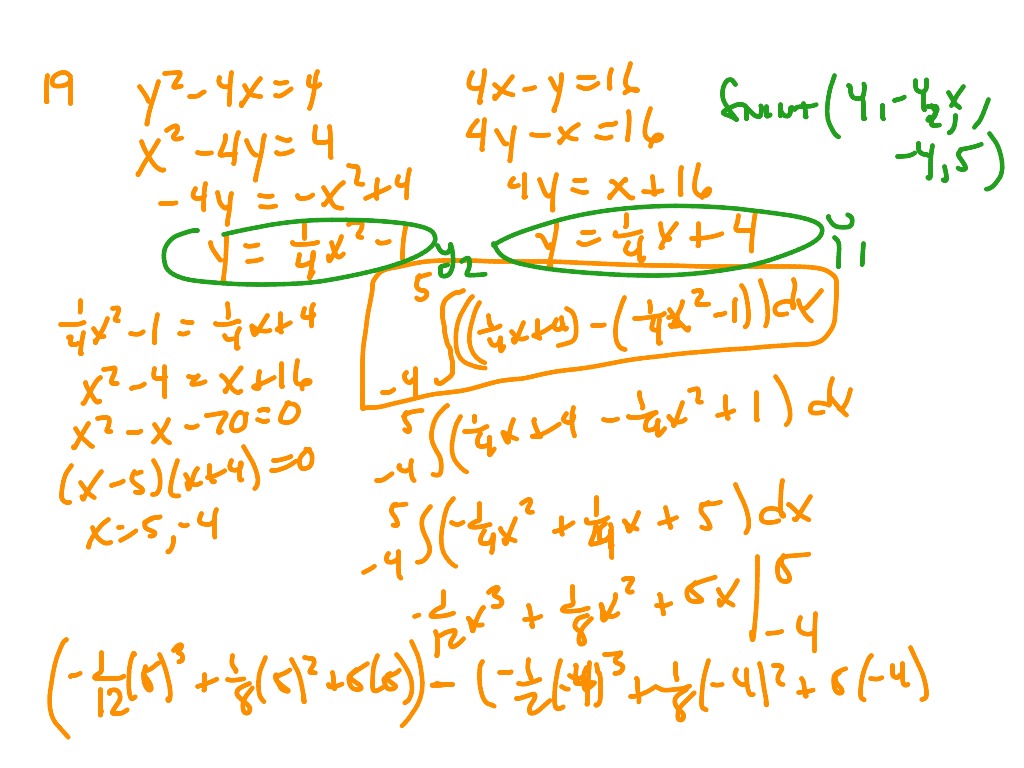 19
y² - 4x = 4
x² - 4y = 4
-4y = -x² + 4
y = 1/4 x² - 1 y₂
4x - y = 16
4y - x = 16
4y = x + 16
y = 1/4 x + 4 y₁
(y₁ - y₂, x,
-4, 5)
1/4 x² - 1 = 1/4 x + 4
x² - 4 = x + 16
x² - x - 20 = 0
(x - 5)(x + 4) = 0
x = 5, -4
∫₋₄⁵ ((1/4 x + 4) - (1/4 x² - 1)) dx
∫₋₄⁵ (1/4 x + 4 - 1/4 x² + 1) dx
∫₋₄⁵ (-1/4 x² + 1/4 x + 5) dx
-1/12 x³ + 1/8 x² + 5x |₋₄⁵
(-1/12 (5)³ + 1/8 (5)² + 5(5)) - (-1/2 (-4)³ + 1/8 (-4)² + 5(-4)